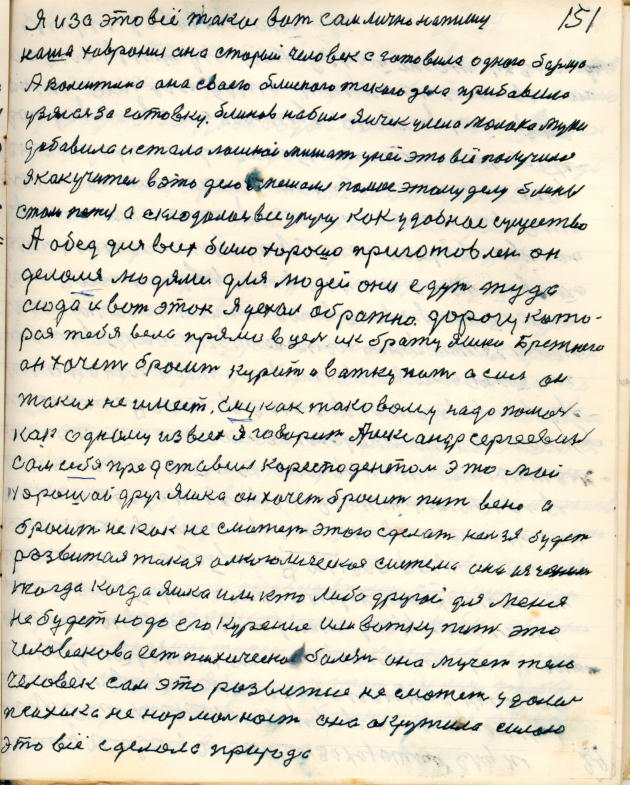 151
Я и за это всё такое вот сам лично напишу
наша хаврония она старый человек сготовила одного борща
А валентина она своего блиского такого дела прибавила
узялася за готовку. блинов набила яичек улила молока муки
добавила и стала ложкой мишат у ней это всё получило
Я как учител в это дело помог этому делу блины
стал а складалося все у кучу как удобное существо
А обед для всех было хорошо приготовлен он
делался людями для людей они едут туда
сюда и вот эток Я уехал обратно. дорогу кото-
рая тебя вела прямо в цел и к брату яшки Бретного
он хочет бросит курит и ватку пит а сил он
таких не имеет, ему как таковому надо помоч.
как одному из всех Я говорит Александр сергеевич
сам себя представил коресподентом это мой
хорошай друг яшка он хочет бросит пит вено а
бросит не как не сможет этого сделат нелзя будет
развитая такая алкоголическая система она
тогда когда яшка или кто либо другой для меня
не будет надо его курение или вотку пит это
человекова ест психическа болезн она мучет тело
человек сам это развитие не сможет удалит
психика не нормолност она окружила силою
это всё сделола природа